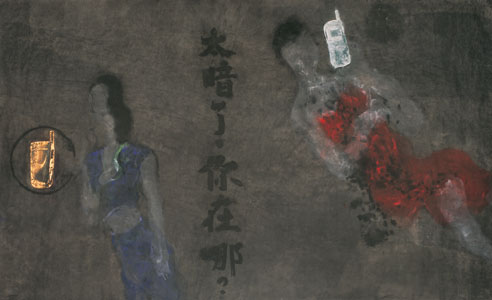 太暗了，你在哪？